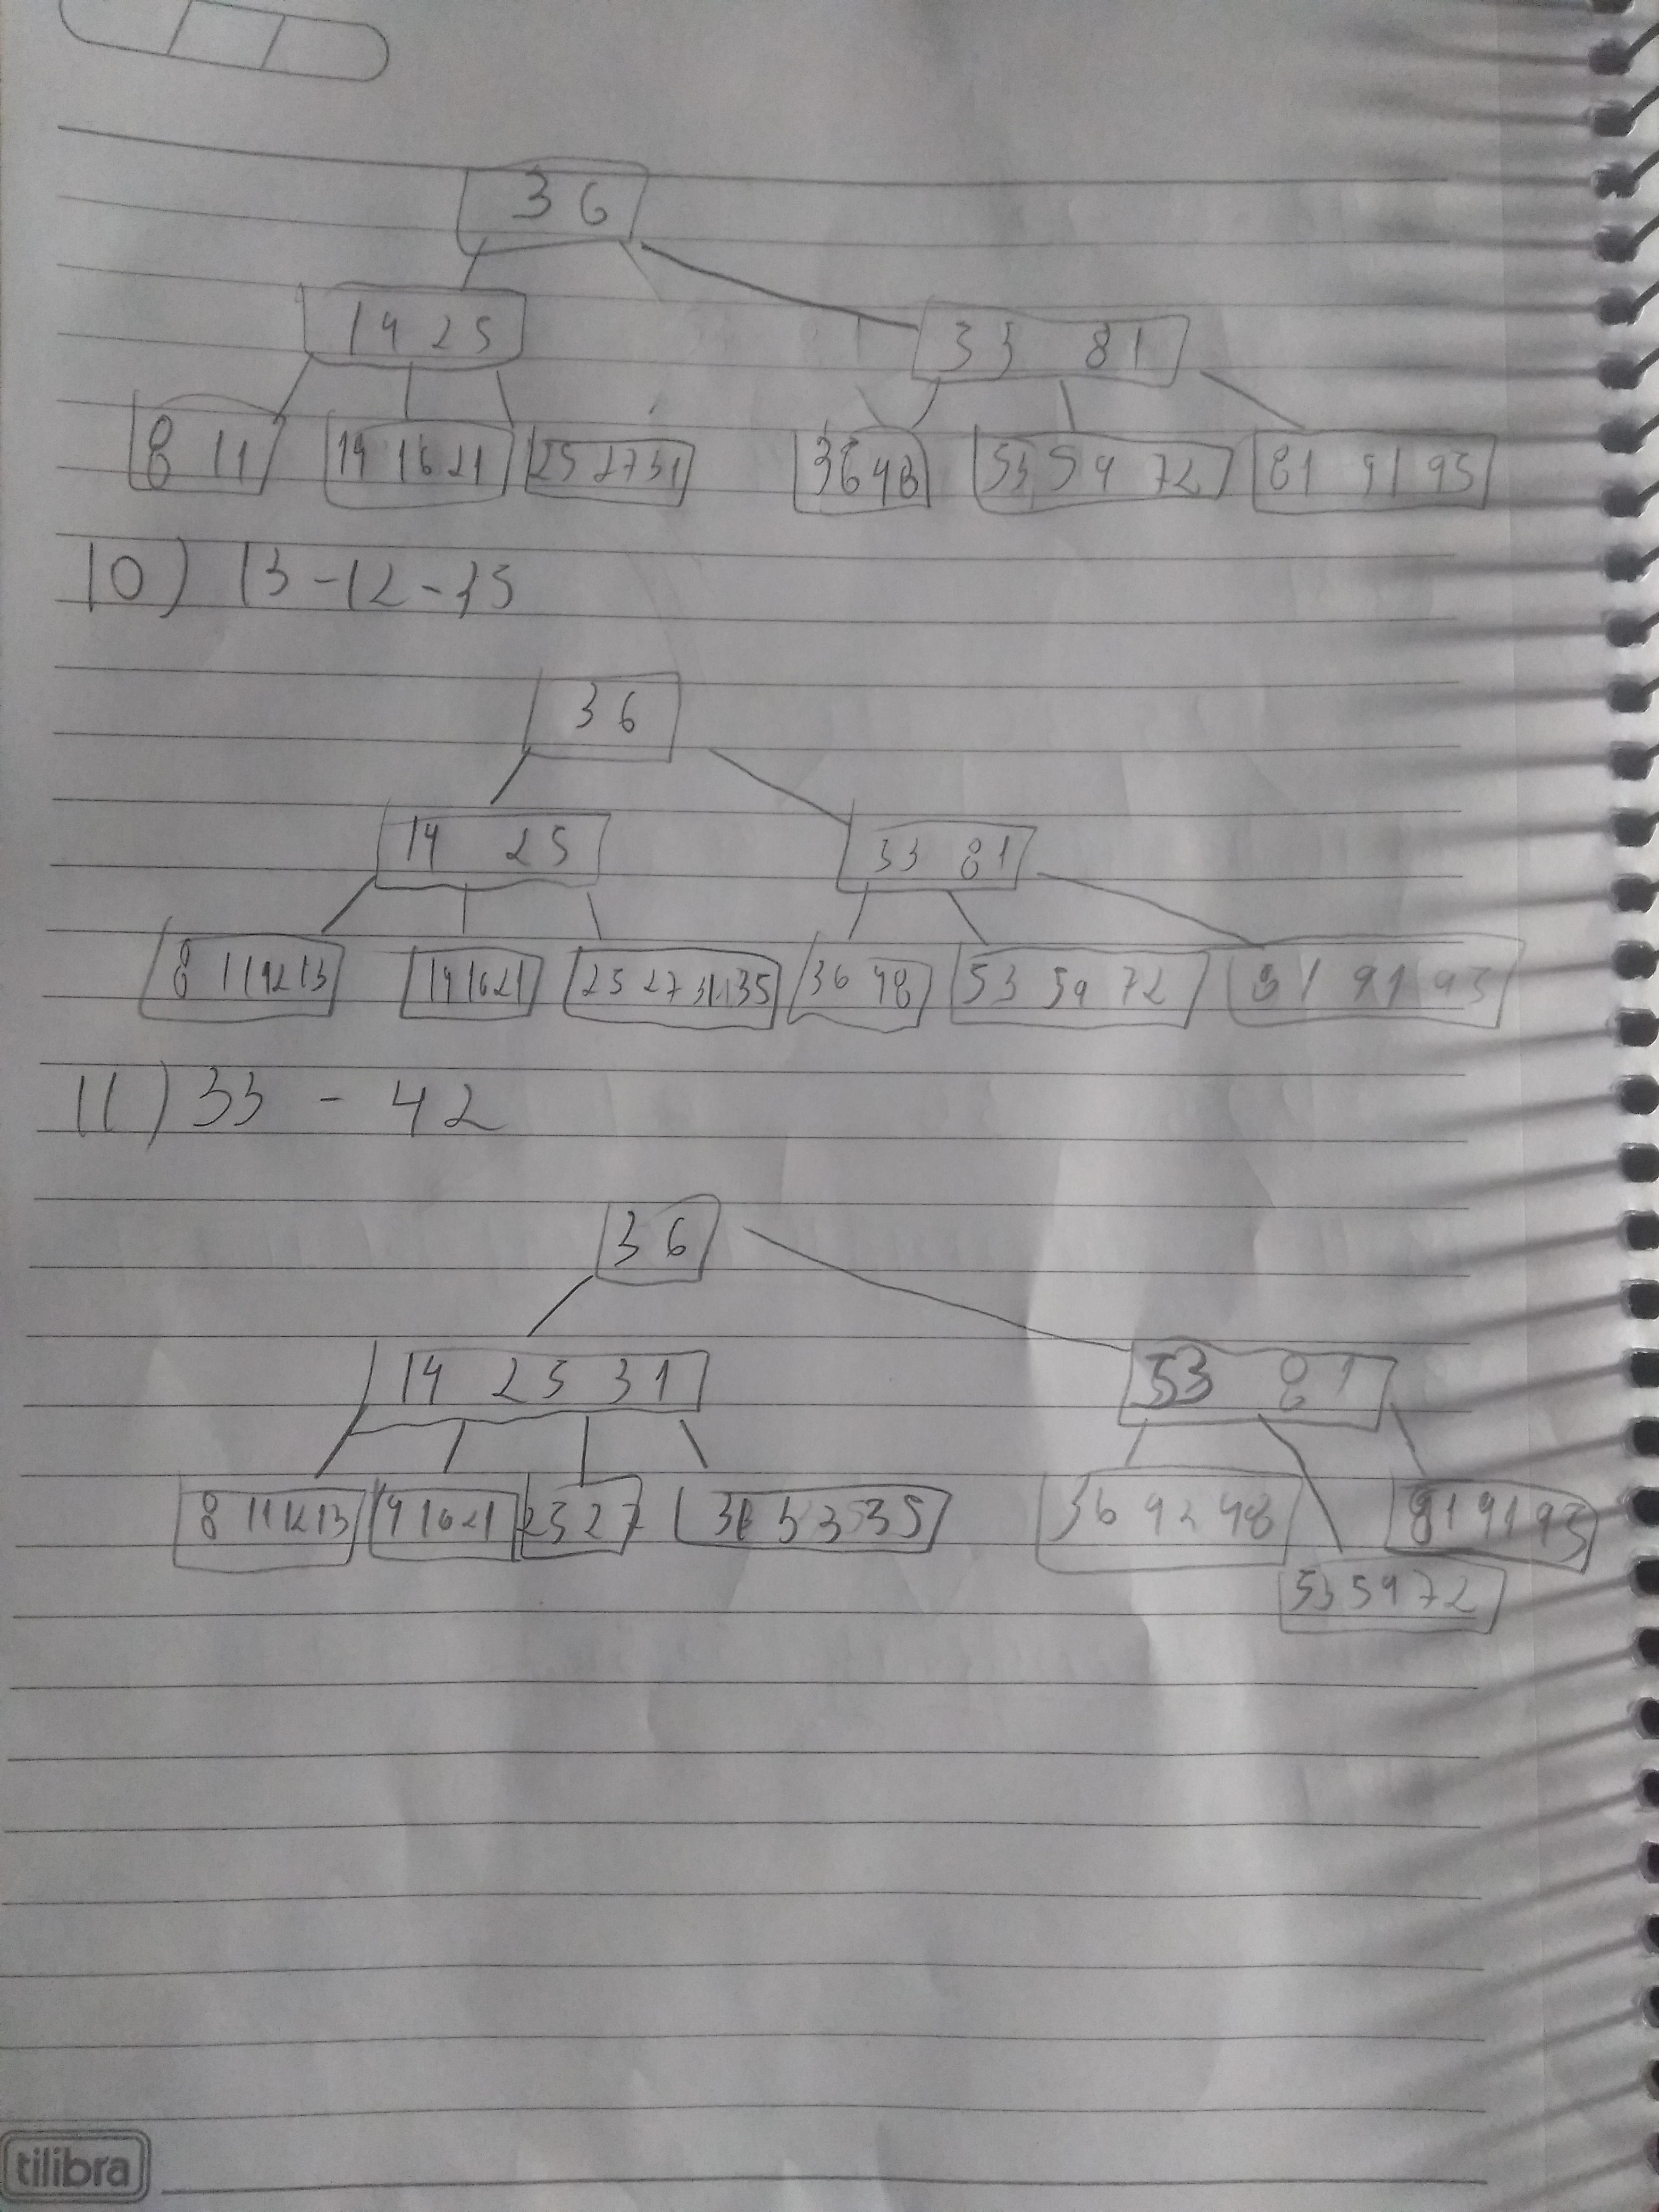 36
14 25 53 81
8 11 14 16 21 25 27 31 36 48 53 59 72 81 91 95
10) 13 - 12 - 35
36
14 25 53 81
8 11 12 13 14 16 21 25 27 31 35 36 48 53 59 72 81 91 95
11) 33 - 42
36
14 25 31 53 81
8 11 12 13 14 16 21 25 27 31 33 35 36 42 48 81 91 95
53 59 72
tilibra